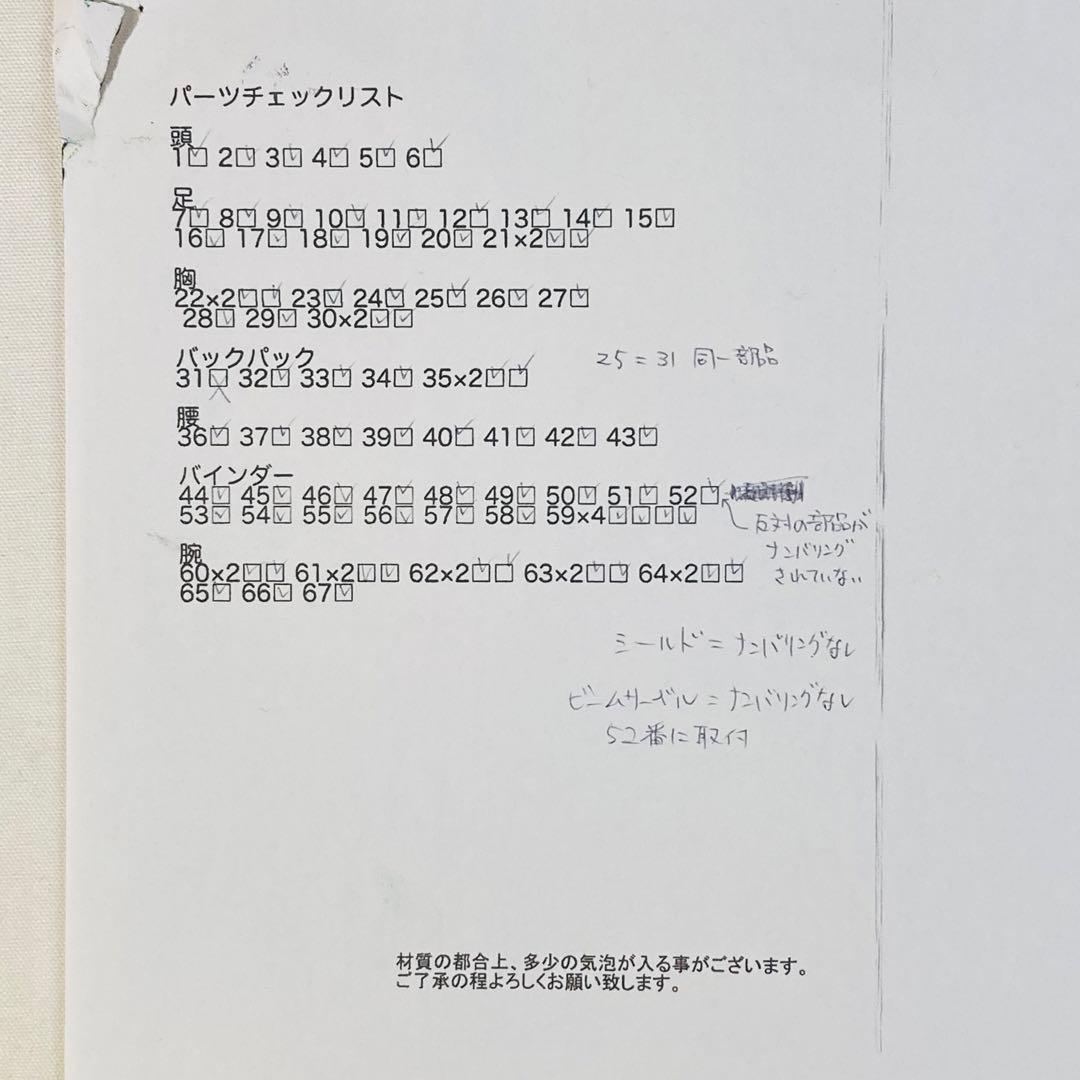 パーツチェックリスト
頭
1☑ 2☑ 3☑ 4☑ 5☑ 6☑
足
7☑ 8☑ 9☑ 10☑ 11☑ 12☑ 13☑ 14☑ 15☑
16☑ 17☑ 18☑ 19☑ 20☑ 21×2☑☑
胸
22×2☑☑ 23☑ 24☑ 25☑ 26☑ 27☑
28☑ 29☑ 30×2☑☑
バックパック
25=31 同一部品
31☑ 32☑ 33☑ 34☑ 35×2☑☑
腰
36☑ 37☑ 38☑ 39☑ 40☑ 41☑ 42☑ 43☑
バインダー
44☑ 45☑ 46☑ 47☑ 48☑ 49☑ 50☑ 51☑ 52☑
53☑ 54☑ 55☑ 56☑ 57☑ 58☑ 59×4☑☑☑☑
反対の部品が
ナンバリング
されていない
腕
60×2☑☑ 61×2☑☑ 62×2☑☑ 63×2☑☑ 64×2☑☑
65☑ 66☑ 67☑
シールド=ナンバリングなし
ビームサーベル=ナンバリングなし
52番に取付
材質の都合上、多少の気泡が入る事がございます。
ご了承の程よろしくお願い致します。